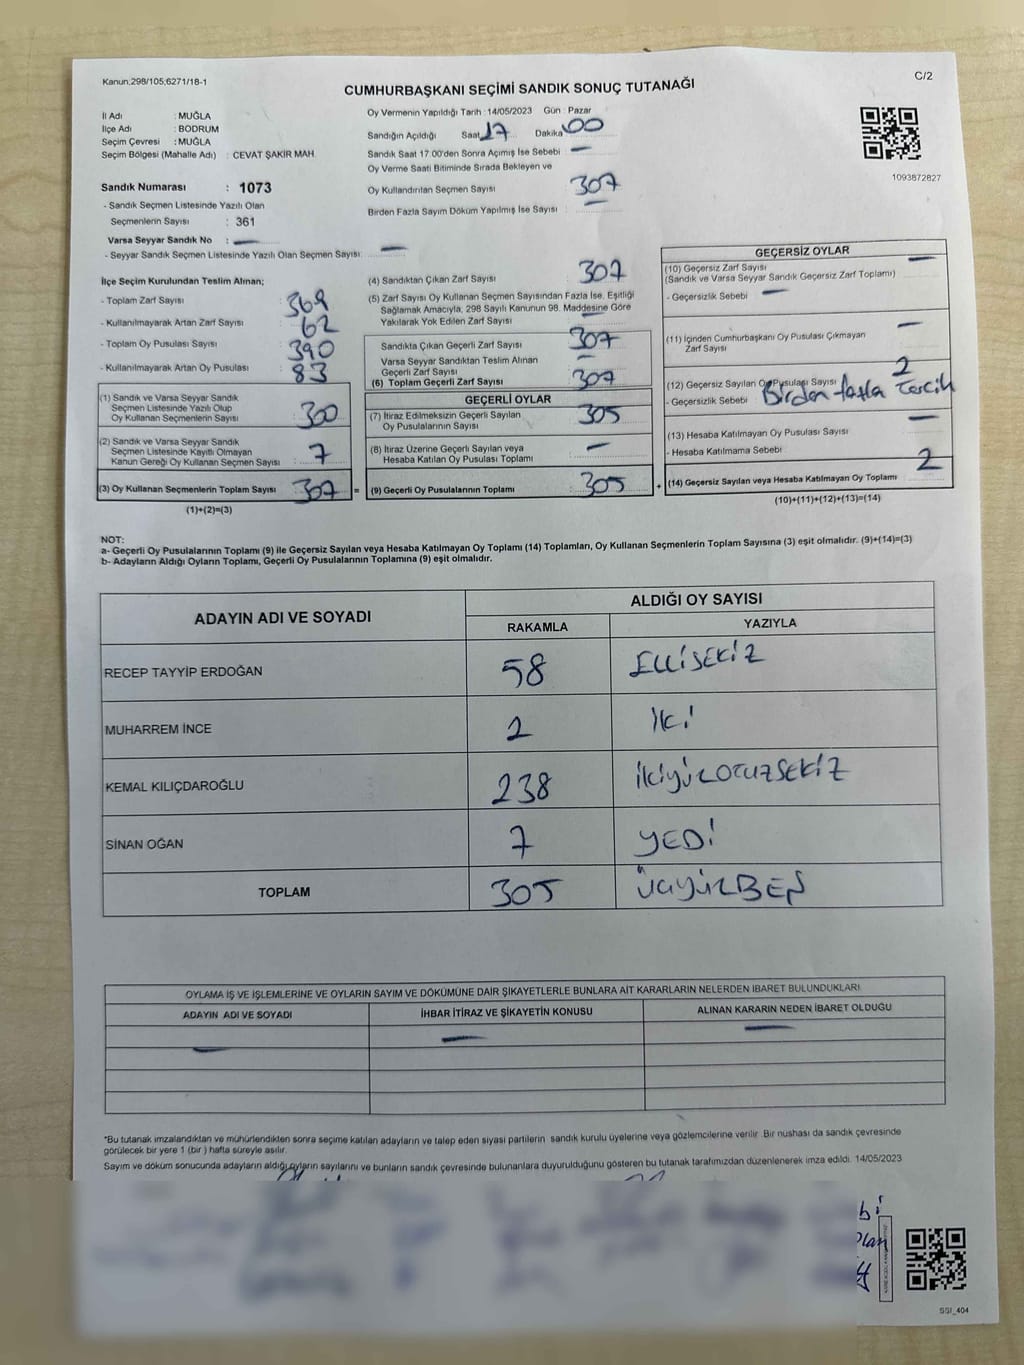 Kanun;298/105;6271/18-1
C/2
CUMHURBAŞKANI SEÇİMİ SANDIK SONUÇ TUTANAĞI
İl Adı : MUĞLA
İlçe Adı : BODRUM
Seçim Çevresi : MUĞLA
Seçim Bölgesi (Mahalle Adı) : CEVAT ŞAKİR MAH.
Sandık Numarası : 1073
- Sandık Seçmen Listesinde Yazılı Olan
Seçmenlerin Sayısı : 361
Varsa Seyyar Sandık No : —
- Seyyar Sandık Seçmen Listesinde Yazılı Olan Seçmen Sayısı: —
Oy Vermenin Yapıldığı Tarih : 14/05/2023 Gün : Pazar
Sandığın Açıldığı Saat 17 Dakika 00
Sandık Saat 17.00'den Sonra Açımış İse Sebebi —
Oy Verme Saati Bitiminde Sırada Bekleyen ve
Oy Kullandırılan Seçmen Sayısı 307
Birden Fazla Sayım Döküm Yapılmış İse Sayısı : —
1093872827
İlçe Seçim Kurulundan Teslim Alınan;
- Toplam Zarf Sayısı : 369
- Kullanılmayarak Artan Zarf Sayısı : 62
- Toplam Oy Pusulası Sayısı : 390
- Kullanılmayarak Artan Oy Pusulası : 83
(1) Sandık ve Varsa Seyyar Sandık
Seçmen Listesinde Yazılı Olup
Oy Kullanan Seçmenlerin Sayısı : 300
(2) Sandık ve Varsa Seyyar Sandık
Seçmen Listesinde Kayıtlı Olmayan
Kanun Gereği Oy Kullanan Seçmen Sayısı : 7
(3) Oy Kullanan Seçmenlerin Toplam Sayısı : 307 =
(1)+(2)=(3)
(4) Sandıktan Çıkan Zarf Sayısı : 307
(5) Zarf Sayısı Oy Kullanan Seçmen Sayısından Fazla İse, Eşitliği
Sağlamak Amacıyla, 298 Sayılı Kanunun 98. Maddesine Göre
Yakılarak Yok Edilen Zarf Sayısı : —
Sandıkta Çıkan Geçerli Zarf Sayısı : 307
Varsa Seyyar Sandıktan Teslim Alınan
Geçerli Zarf Sayısı : —
(6) Toplam Geçerli Zarf Sayısı : 307
GEÇERLİ OYLAR
(7) İtiraz Edilmeksizin Geçerli Sayılan
Oy Pusulalarının Sayısı : 305
(8) İtiraz Üzerine Geçerli Sayılan veya
Hesaba Katılan Oy Pusulası Toplamı : —
(9) Geçerli Oy Pusulalarının Toplamı : 305 +
GEÇERSİZ OYLAR
(10) Geçersiz Zarf Sayısı —
(Sandık ve Varsa Seyyar Sandık Geçersiz Zarf Toplamı)
- Geçersizlik Sebebi : —
(11) İçinden Cumhurbaşkanı Oy Pusulası Çıkmayan
Zarf Sayısı —
(12) Geçersiz Sayılan Oy Pusulası Sayısı 2
- Geçersizlik Sebebi Birden fazla tercih
(13) Hesaba Katılmayan Oy Pusulası Sayısı : —
- Hesaba Katılmama Sebebi
(14) Geçersiz Sayılan veya Hesaba Katılmayan Oy Toplamı : 2
(10)+(11)+(12)+(13)=(14)
NOT:
a- Geçerli Oy Pusulalarının Toplamı (9) ile Geçersiz Sayılan veya Hesaba Katılmayan Oy Toplamı (14) Toplamları, Oy Kullanan Seçmenlerin Toplam Sayısına (3) eşit olmalıdır. (9)+(14)=(3)
b- Adayların Aldığı Oyların Toplamı, Geçerli Oy Pusulalarının Toplamına (9) eşit olmalıdır.
ADAYIN ADI VE SOYADI
ALDIĞI OY SAYISI
RAKAMLA YAZIYLA
RECEP TAYYİP ERDOĞAN 58 ELLİSEKİZ
MUHARREM İNCE 2 İKİ
KEMAL KILIÇDAROĞLU 238 İKİYÜZOTUZSEKİZ
SİNAN OĞAN 7 YEDİ
TOPLAM 305 ÜÇYÜZBEŞ
OYLAMA İŞ VE İŞLEMLERİNE VE OYLARIN SAYIM VE DÖKÜMÜNE DAİR ŞİKAYETLERLE BUNLARA AİT KARARLARIN NELERDEN İBARET BULUNDUKLARI
ADAYIN ADI VE SOYADI İHBAR İTİRAZ VE ŞİKAYETİN KONUSU ALINAN KARARIN NEDEN İBARET OLDUĞU
— — —
*Bu tutanak imzalandıktan ve mühürlendikten sonra seçime katılan adayların ve talep eden siyasi partilerin sandık kurulu üyelerine veya gözlemcilerine verilir. Bir nüshası da sandık çevresinde
görülecek bir yere 1 (bir ) hafta süreyle asılır.
Sayım ve döküm sonucunda adayların aldığı oyların sayılarını ve bunların sandık çevresinde bulunanlara duyurulduğunu gösteren bu tutanak tarafımızdan düzenlenerek imza edildi. 14/05/2023
SSI_404